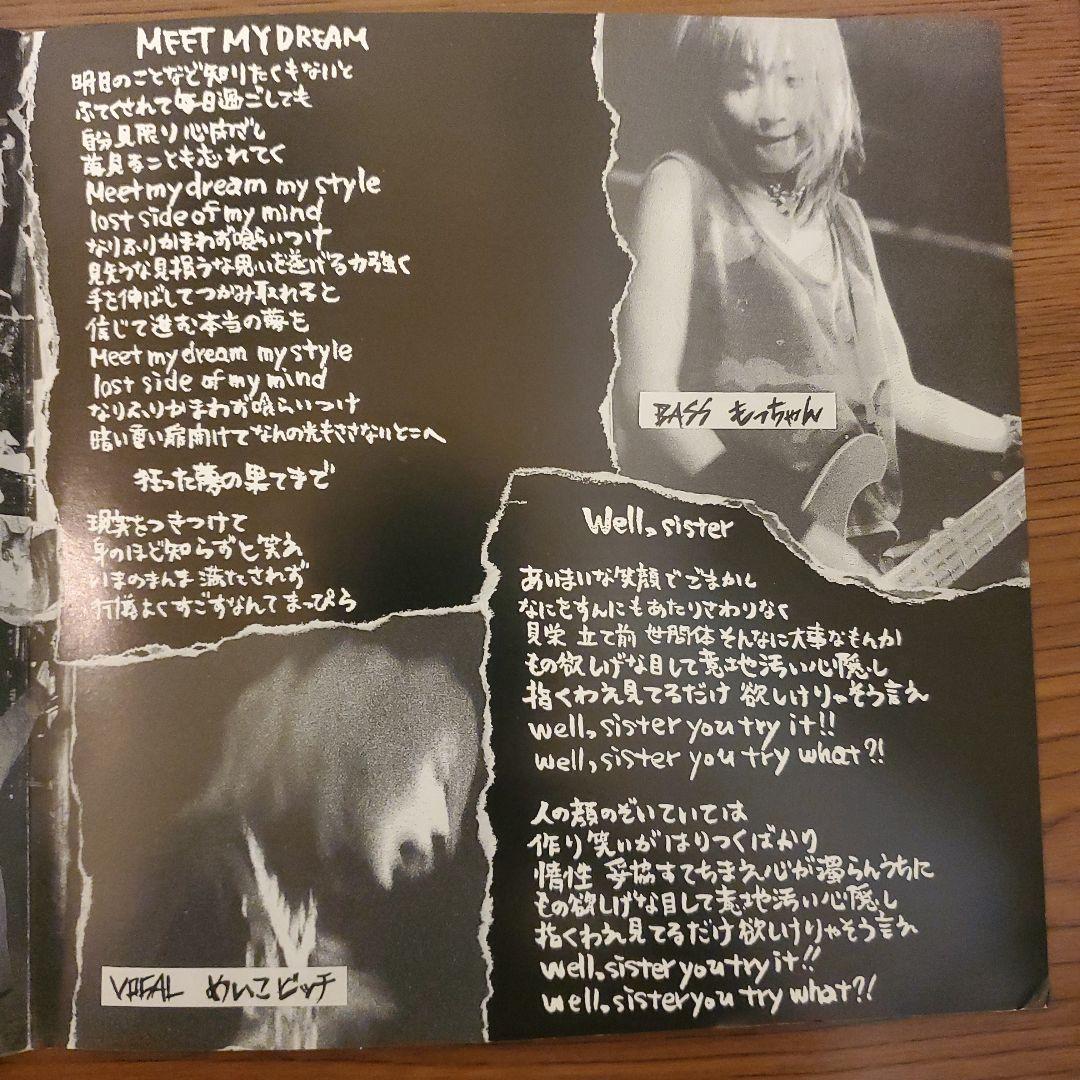 MEET MY DREAM
明日のことなど知りたくもないと
ふてくされて毎日過ごしても
自分見限り心はだし
夢見ることも忘れてく
Meet my dream my style
lost side of my mind
なりふりかまわず喰らいつけ
見失うな見損うな思いを遂げる力強く
手を伸ばしてつかみ取れると
信じて進む本当の夢を
Meet my dream my style
lost side of my mind
なりふりかまわず喰らいつけ
暗い重い扉開けてなんの光もささないとこへ
狂った夢の果てまで
現実をつきつけて
身のほど知らずと笑え
いまのまんま満たされず
行儀よくすごすなんてまっぴら
BASS もっちゃん
Well, sister
あいまいな笑顔でごまかし
なにをすんにもあたりさわりなく
見栄 立て前 世間体 そんなに大事なもんか
もの欲しげな目して意地汚い心隠し
指くわえ見てるだけ 欲しけりゃそう言え
well, sister you try it!!
well, sister you try what?!
人の顔のぞいていては
作り笑いがはりつくばかり
惰性 妥協すてちまえ心が濁らんうちに
もの欲しげな目して意地汚い心隠し
指くわえ見てるだけ欲しけりゃそう言え
well, sister you try it!!
well, sister you try what?!
VOCAL めいこビッチ